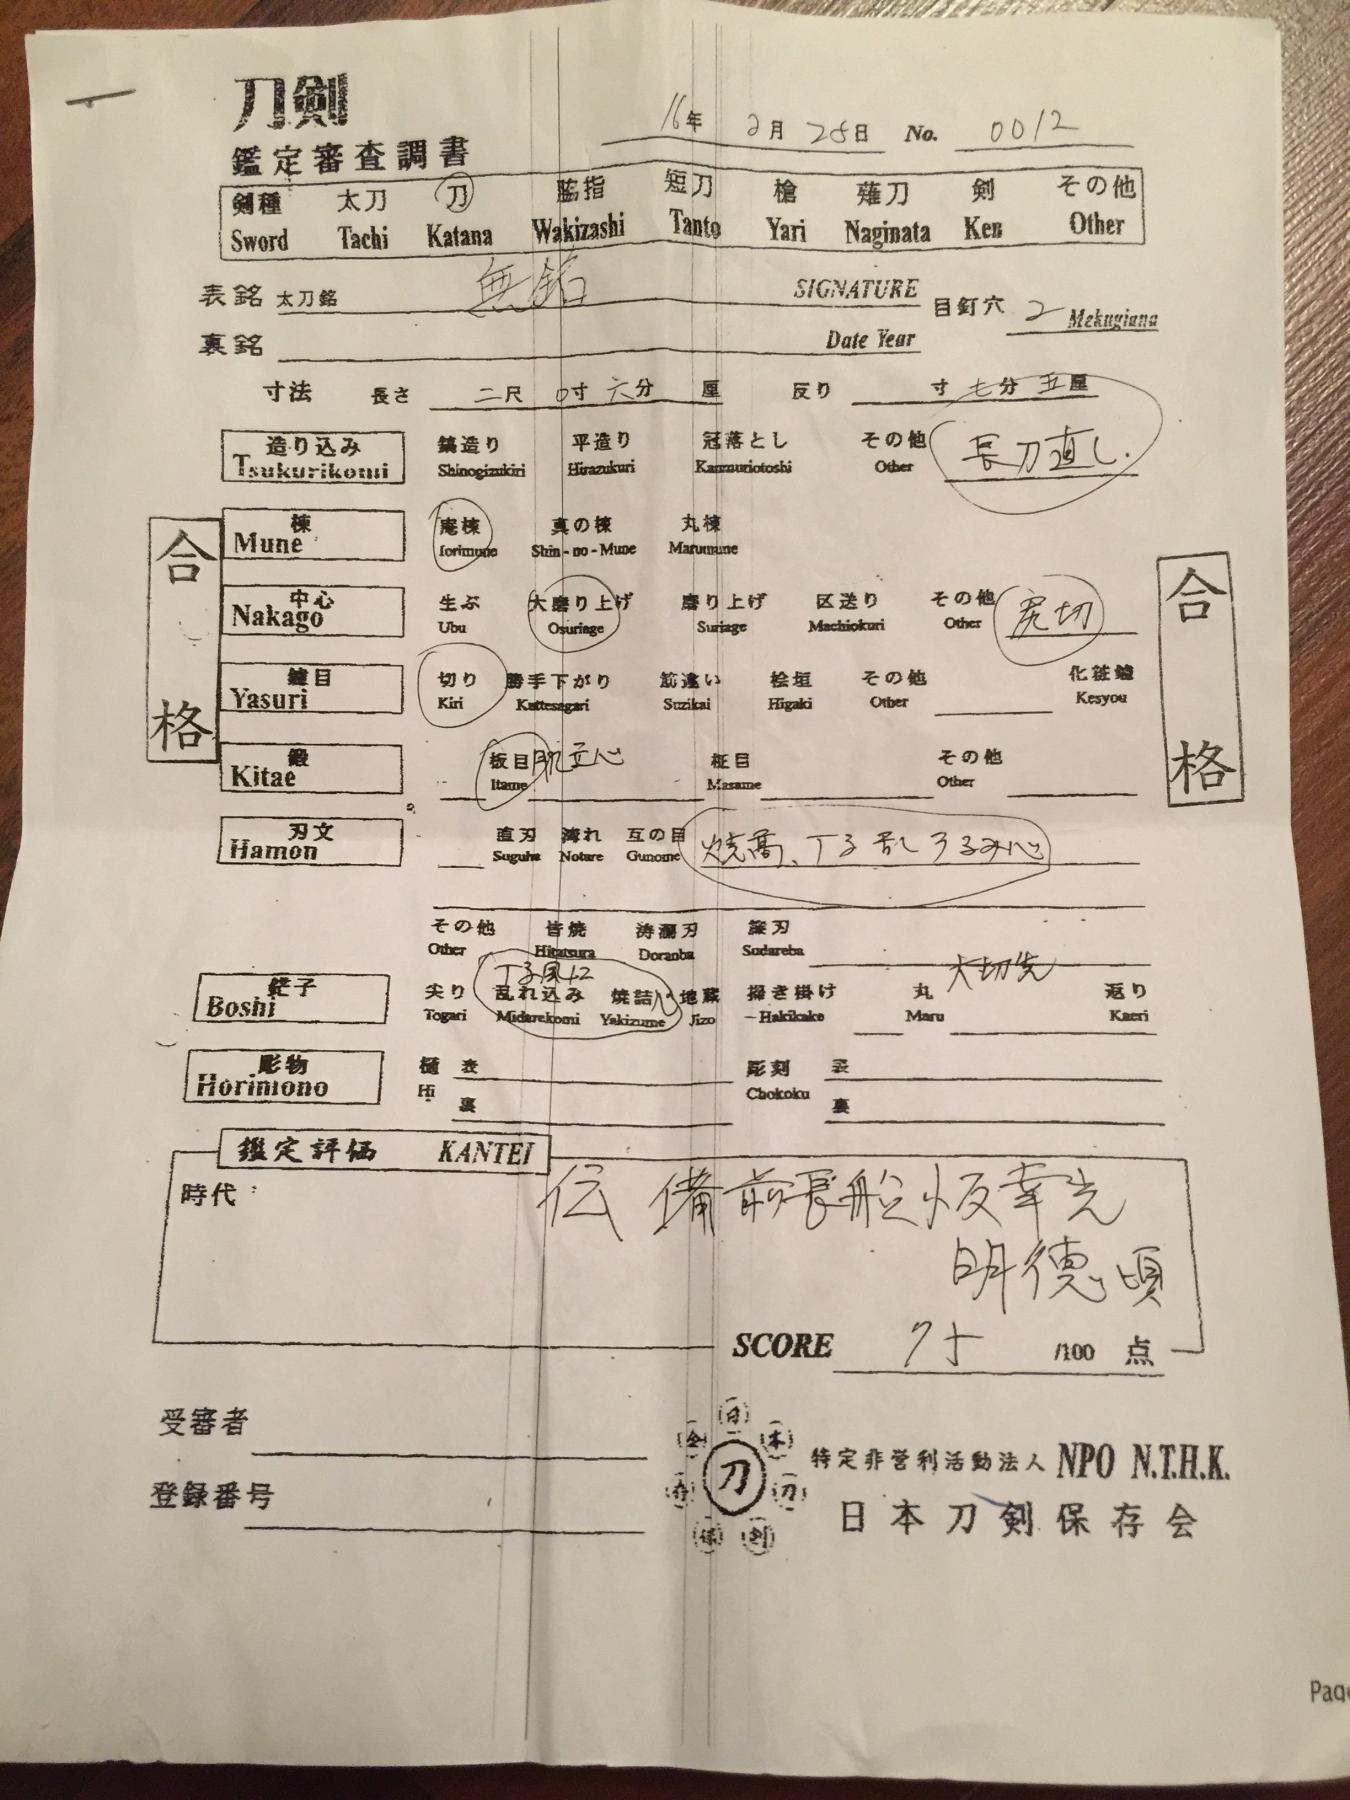 刀剣
鑑定審査調書
16年 2月 28日 No. 0012
剣種 太刀 刀 脇指 短刀 槍 薙刀 剣 その他
Sword Tachi Katana Wakizashi Tanto Yari Naginata Ken Other
表銘 太刀銘 無銘 SIGNATURE 目釘穴 2 Mekugiana
裏銘 Date Year
寸法 長さ 二尺 0寸 六分 厘 反り 寸 七分 五厘
造り込み 鎬造り 平造り 冠落とし その他 長刀直し.
Tsukurikomi Shinogizukiri Hirazukuri Kanmuriotoshi Other
棟 庵棟 真の棟 丸棟
Mune Iorimune Shin-no-Mune Marumune
中心 生ぶ 大磨り上げ 磨り上げ 区送り その他 尻切
Nakago Ubu Osuriage Suriage Machiokuri Other
鑢目 切り 勝手下がり 筋違い 桧垣 その他 化粧鑢
Yasuri Kiri Kattesagari Suzikai Higaki Other Kesyou
鍛 板目 肌立心 柾目 その他
Kitae Itame Masame Other
刃文 直刃 湾れ 互の目 焼高、丁子乱
Hamon Suguha Notare Gunome
その他 皆焼 涛瀾刃 簾刃
Other Hitatsura Doranba Sudareba
丁子風に 大切先
鋩子 尖り 乱れ込み 焼詰心 地蔵 掃き掛け 丸 返り
Boshi Togari Midarekomi Yakizume Jizo Hakikake Maru Kaeri
彫物 樋 表 彫刻 表
Horimono Hi 裏 Chokoku 裏
合格
合格
鑑定評価 KANTEI
時代 伝 備前長船小反幸光
明徳頃
SCORE 75 /100 点
受審者
登録番号
刀
日本刀剣保存会
特定非営利活動法人 NPO N.T.H.K.
日本刀剣保存会